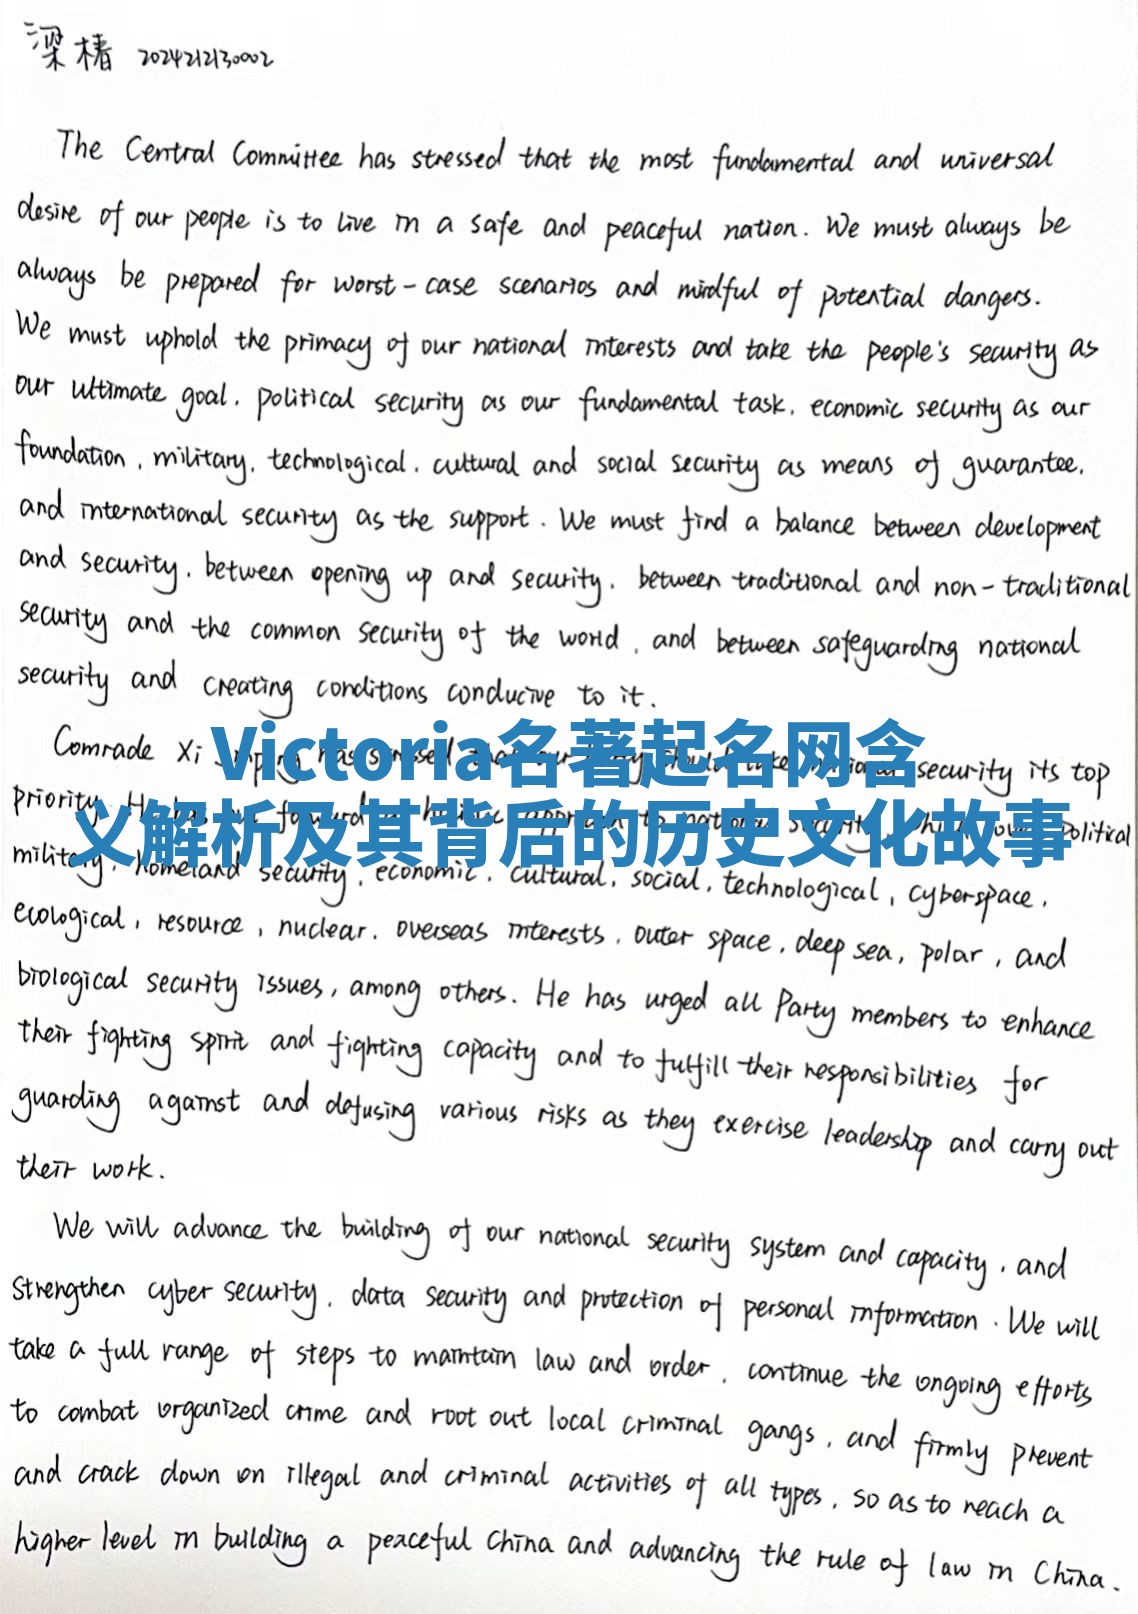 梁椿 2024212130002
The Central Committee has stressed that the most fundamental and universal
desire of our people is to live in a safe and peaceful nation. We must always be
always be prepared for worst-case scenarios and mindful of potential dangers.
We must uphold the primacy of our national interests and take the people's security as
our ultimate goal, political security as our fundamental task, economic security as our
foundation, military, technological, cultural and social security as means of guarantee,
and international security as the support. We must find a balance between development
and security, between opening up and security, between traditional and non-traditional
security and the common security of the world, and between safeguarding national
security and creating conditions conducive to it.
Comrade Xi security its top
Victoria名著起名网含
priority. political
义解析及其背后的历史文化故事
military, homeland security, economic, cultural, social, technological, cyberspace,
ecological, resource, nuclear, overseas interests, outer space, deep sea, polar, and
biological security issues, among others. He has urged all Party members to enhance
their fighting spirit and fighting capacity and to fulfill their responsibilities for
guarding against and defusing various risks as they exercise leadership and carry out
their work.
We will advance the building of our national security system and capacity, and
strengthen cyber security, data security and protection of personal information. We will
take a full range of steps to maintain law and order, continue the ongoing efforts
to combat organized crime and root out local criminal gangs, and firmly prevent
and crack down on illegal and criminal activities of all types, so as to reach a
higher level in building a peaceful China and advancing the rule of law in China.